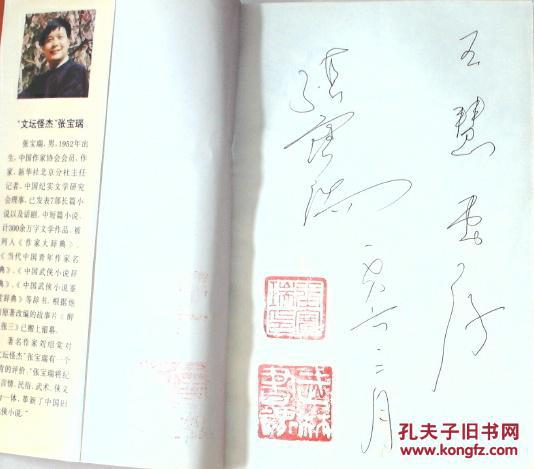 “文坛怪杰”张宝瑞
张宝瑞,男,1952年出
生,中国作家协会会员,作
家,新华社北京分社主任
记者,中国纪实文学研究
会理事,已发表7部长篇小
说以及话剧、中短篇小说,
计300余万字文学作品,被
列入《作家大辞典》、
《当代中国青年作家名
典》、《中国武侠小说辞
典》、《中国武侠小说鉴
赏辞典》等辞书,根据他
原著改编的故事片《醉
张三》已搬上银幕。
著名作家刘绍棠对
文坛怪杰”张宝瑞有一个
有的评价:“张宝瑞将纪
言情、民俗、武术、侠义
为一体,革新了中国旧
侠小说。”
王慧
张宝瑞
二月
张宝
瑞印
孔夫子旧书网
www.kongfz.com